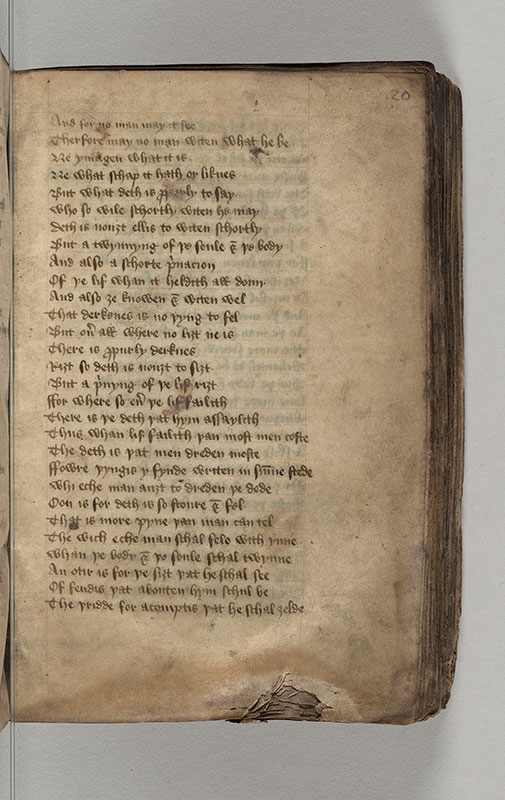 20
And for no man may it see
Therfore may no man witen what he be
Ne ymagen what it is
Ne what schap it hath or liknes
But what deth is pꝓerly to say
Who so wile schortly witen he may
deth is nouȝt ellis to witen schortly
But a twynnyng of þe soule & þe body
And also a schorte p̄uacion
Of þe lif whan it heldith all doun
And also ȝe knowen & witen wel
That derknes is no þyng to fel
But on̄ all where no liȝt ne is
There is ꝓpurly derknes
Riȝt so deth is nouȝt to siȝt
But a p̄uyng of þe lif riȝt
ffor where so eū þe lif failith
There is þe deth þat hym assaylith
Thus whan lif failith þan most men coste
The deth is þat men dreden moste
ffowre þyngis y fynde writen in su̅me stede
Whi eche man auȝt to dreden þe dede
Oon is for deth is so stoure & fel
That is more pyne þan man can tel
The wich eche man schal fele with ynne
Whan þe body & þe soule schal twynne
An otir is for þe siȝt þat he schal see
Of fendis þat abouten hym schul be
The þridde for acomptis þat he schal ȝelde